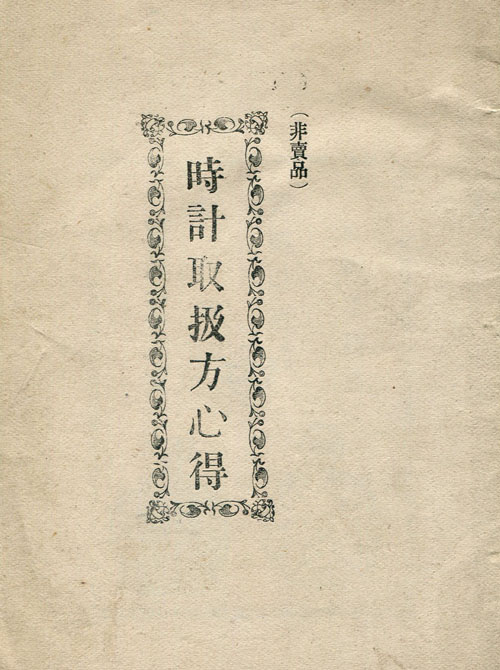 （非賣品）
時計取扱方心得